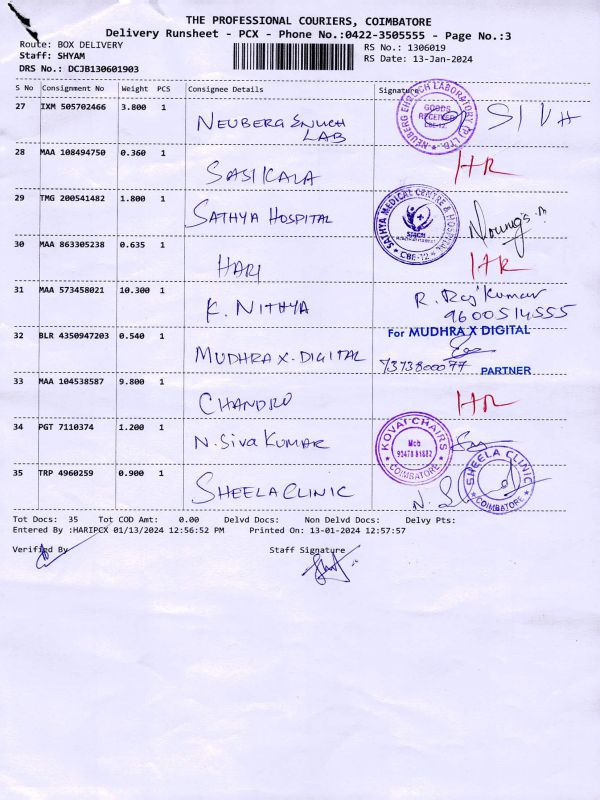 THE PROFESSIONAL COURIERS, COIMBATORE
Delivery Runsheet - PCX - Phone No.:0422-3505555 - Page No.:3
Route: BOX DELIVERY
RS No.: 1306019
Staff: SHYAM
RS Date: 13-Jan-2024
DRS No.: DCJB130601903
S No Consignment No Weight PCS Consignee Details Signature
27 IXM 505702466 3.800 1
NEUBERG ENUCH LAB
NEUBERG EHRLICH LABORATORY (P) LTD.
GOODS RECEIVED
CBE-12.
SIVA
28 MAA 108494750 0.360 1
SASIKALA
HR
29 TMG 200541482 1.800 1
SATHYA HOSPITAL
SATHYA MEDICAL CENTRE & HOSPITAL
CBE-12
30 MAA 863305238 0.635 1
HARI
HR
31 MAA 573458021 10.300 1
K. NITHYA
R. Raj Kumar
9600514555
32 BLR 4350947203 0.540 1
MUDHRA X. DIGITAL
For MUDHRA X DIGITAL
7373800077 PARTNER
33 MAA 104538587 9.800 1
CHANDRU
HR
34 PGT 7110374 1.200 1
N. SIVA KUMAR
KOVAI CHAIRS
Mob
COIMBATORE
35 TRP 4960259 0.900 1
SHEELA CLINIC
SHEELA CLINIC
COIMBATORE
Tot Docs: 35 Tot COD Amt: 0.00 Delvd Docs: Non Delvd Docs: Delvy Pts:
Entered By :HARIPCX 01/13/2024 12:56:52 PM Printed On: 13-01-2024 12:57:57
Verified By
Staff Signature